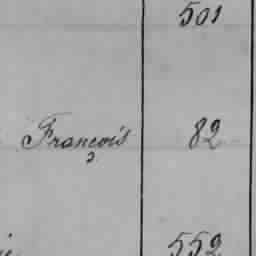 501
François 82
552